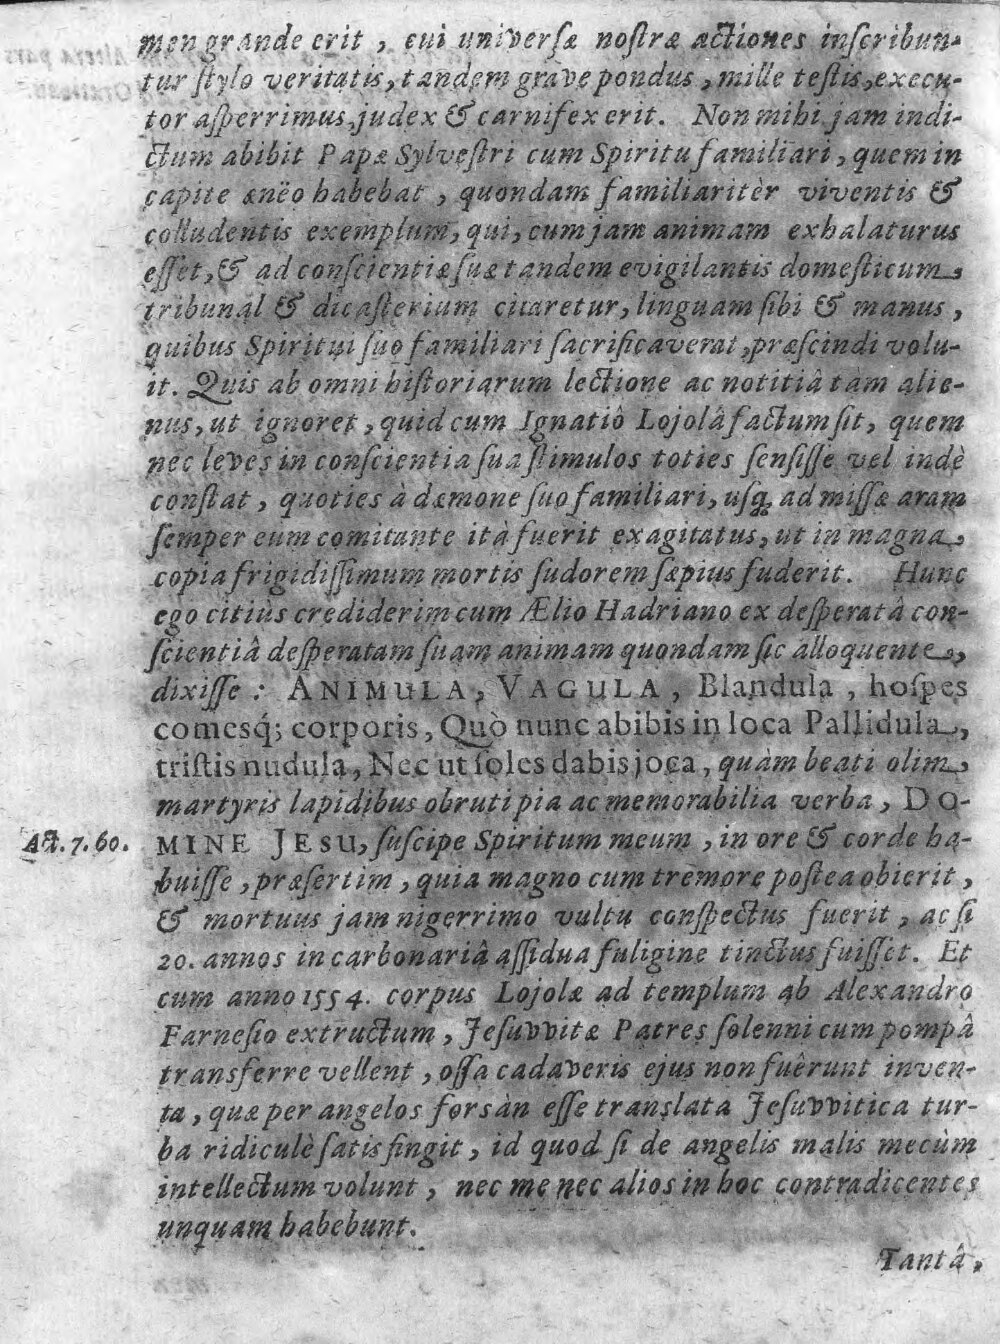 men grande erit, cui universæ nostræ actiones inscribun-
tur stylo veritatis, tandem grave pondus, mille testis, execu-
tor asperrimus, judex & carnifex erit. Non mihi jam indi-
ctum abibit Papæ Sylvestri cum Spiritu familiari, quem in
capite æneo habebat, quondam familiaritèr viventis &
colludentis exemplum, qui, cum jam animam exhalaturus
esset, & ad conscientiæ suæ tandem evigilantis domesticum,
tribunal & dicasterium citaretur, linguam sibi & manus,
quibus Spiritui suo familiari sacrificaverat, præscindi volu-
it. Quis ab omni historiarum lectione ac notitiâ tàm alie-
nus, ut ignoret, quid cum Ignatiô Lojolâ factum sit, quem
nec leves in conscientia sua stimulos toties sensisse vel indè
constat, quoties à dæmone suo familiari, usq; ad missæ aram
semper eum comitante ità fuerit exagitatus, ut in magna,
copia frigidissimum mortis sudorem sæpius fuderit. Hunc
ego citiùs crediderim cum Ælio Hadriano ex desperatâ con-
scientiâ desperatam suam animam quondam sic alloquente,
dixisse: ANIMULA, VAGULA, Blandula, hospes
comesq́; corporis, Quò nunc abibis in loca Pallidula,
tristis nudula, Nec ut soles dabis joca, quàm beati olim,
martyris lapidibus obruti pia ac memorabilia verba, DO-
Act. 7. 60. MINE JESU, suscipe Spiritum meum, in ore & corde ha-
buisse, præsertim, quia magno cum tremore postea obierit,
& mortuus jam nigerrimo vultu conspectus fuerit, ac si
20. annos in carbonariâ assidua fuligine tinctus fuisset. Et
cum anno 1554. corpus Lojolæ ad templum ab Alexandro
Farnesio extructum, Jesuvvitæ Patres solenni cum pompâ
transferre vellent, ossa cadaveris ejus non fuêrunt inven-
ta, quæ per angelos forsàn esse translata Jesuvvitica tur-
ba ridiculè satis fingit, id quod si de angelis malis mecùm
intellectum volunt, nec me nec alios in hoc contradicentes
unquam habebunt.
Tantâ,